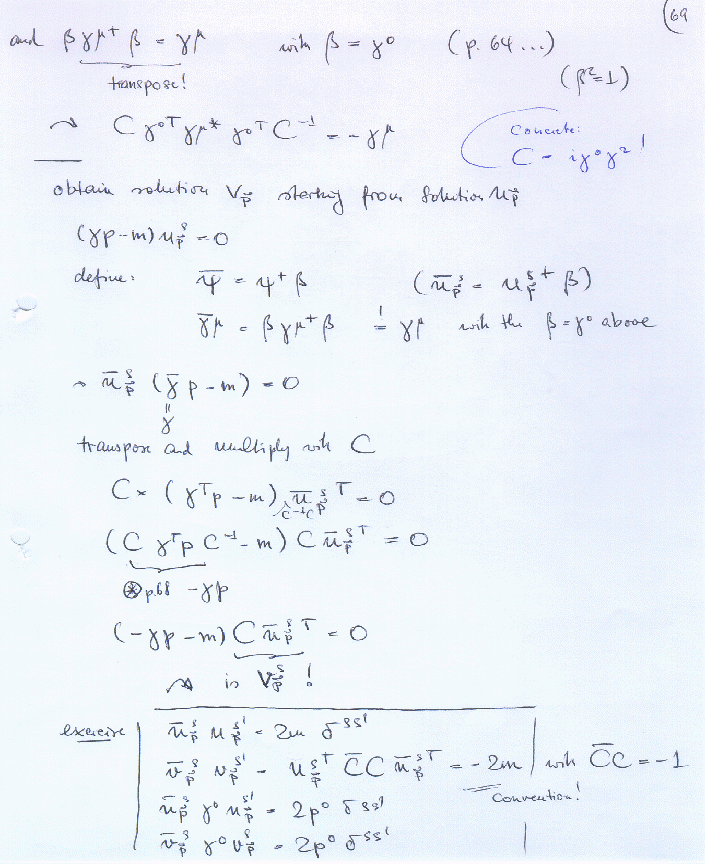 69
and β γ^μ+ β = γ^μ with β = γ⁰ (p. 64 ...)
transpose!
(β²=1)
⇝ C γ^0T γ^μ* γ^0T C⁻¹ = - γ^μ
Concrete:
C = iγ⁰γ² !
obtain solution v_p⃗ starting from solution u_p⃗
(γp - m) u^s_p⃗ = 0
define: ψ̄ = ψ⁺ β (ū^s_p⃗ = u^s_p⃗⁺ β)
γ̄^μ = β γ^μ+ β =! γ^μ with the β = γ⁰ above
⇝ ū^s_p⃗ (γ̄ p - m) = 0
=
γ
transpose and multiply with C
C × (γ^T p - m) ū^s_p⃗^T = 0
C⁻¹C
(C γ^T p C⁻¹ - m) C ū^s_p⃗^T = 0
⊛ p.68 - γp
(-γp - m) C ū^s_p⃗^T = 0
⇝ is v^s_p⃗ !
exercise ū^s_p⃗ u^s'_p⃗ = 2m δ^ss'
v̄^s_p⃗ v^s'_p⃗ = u^s_p⃗^T C̄ C ū^s_p⃗^T = - 2m with C̄C = -1
convention!
ū^s_p⃗ γ⁰ u^s'_p⃗ = 2p⁰ δ^ss'
v̄^s_p⃗ γ⁰ v^s_p⃗ = 2p⁰ δ^ss'